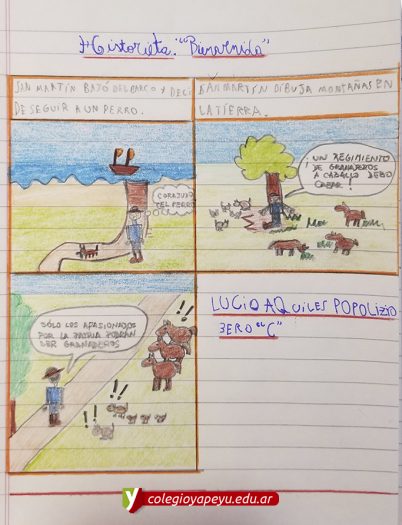 Historieta: "Bienvenido"
SAN MARTÍN BAJÓ DEL BARCO Y DECI
DE SEGUIR A UN PERRO.
SAN MARTÍN DIBUJA MONTAÑAS EN
LA TIERRA.
CORAJUDO
EL PERRO
¡UN REGIMIENTO
DE GRANADEROS
A CABALLO DEBO
CREAR!
SÓLO LOS APASIONADOS
POR LA PATRIA PODRÁN
SER GRANADEROS
!!
!!
!!
LUCIO AQUILES POPOLIZIO
3ERO "C"
colegioyapeyu.edu.ar